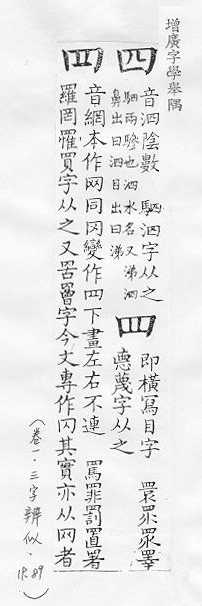 增廣字學舉隅
四
音泗陰數 駟泗字从之
駟兩驂也泗水名又涕泗
鼻出曰泗目出曰涕
罒
即橫寫目字 睘眔眾睪
悳蔑字从之
罒
音網本作网同冈變作罒下畫左右不連 罵罪罰置署
羅罔罹買字从之又罟罾字今文專作冈其實亦从网者
(卷一·三字辨似·18.89)